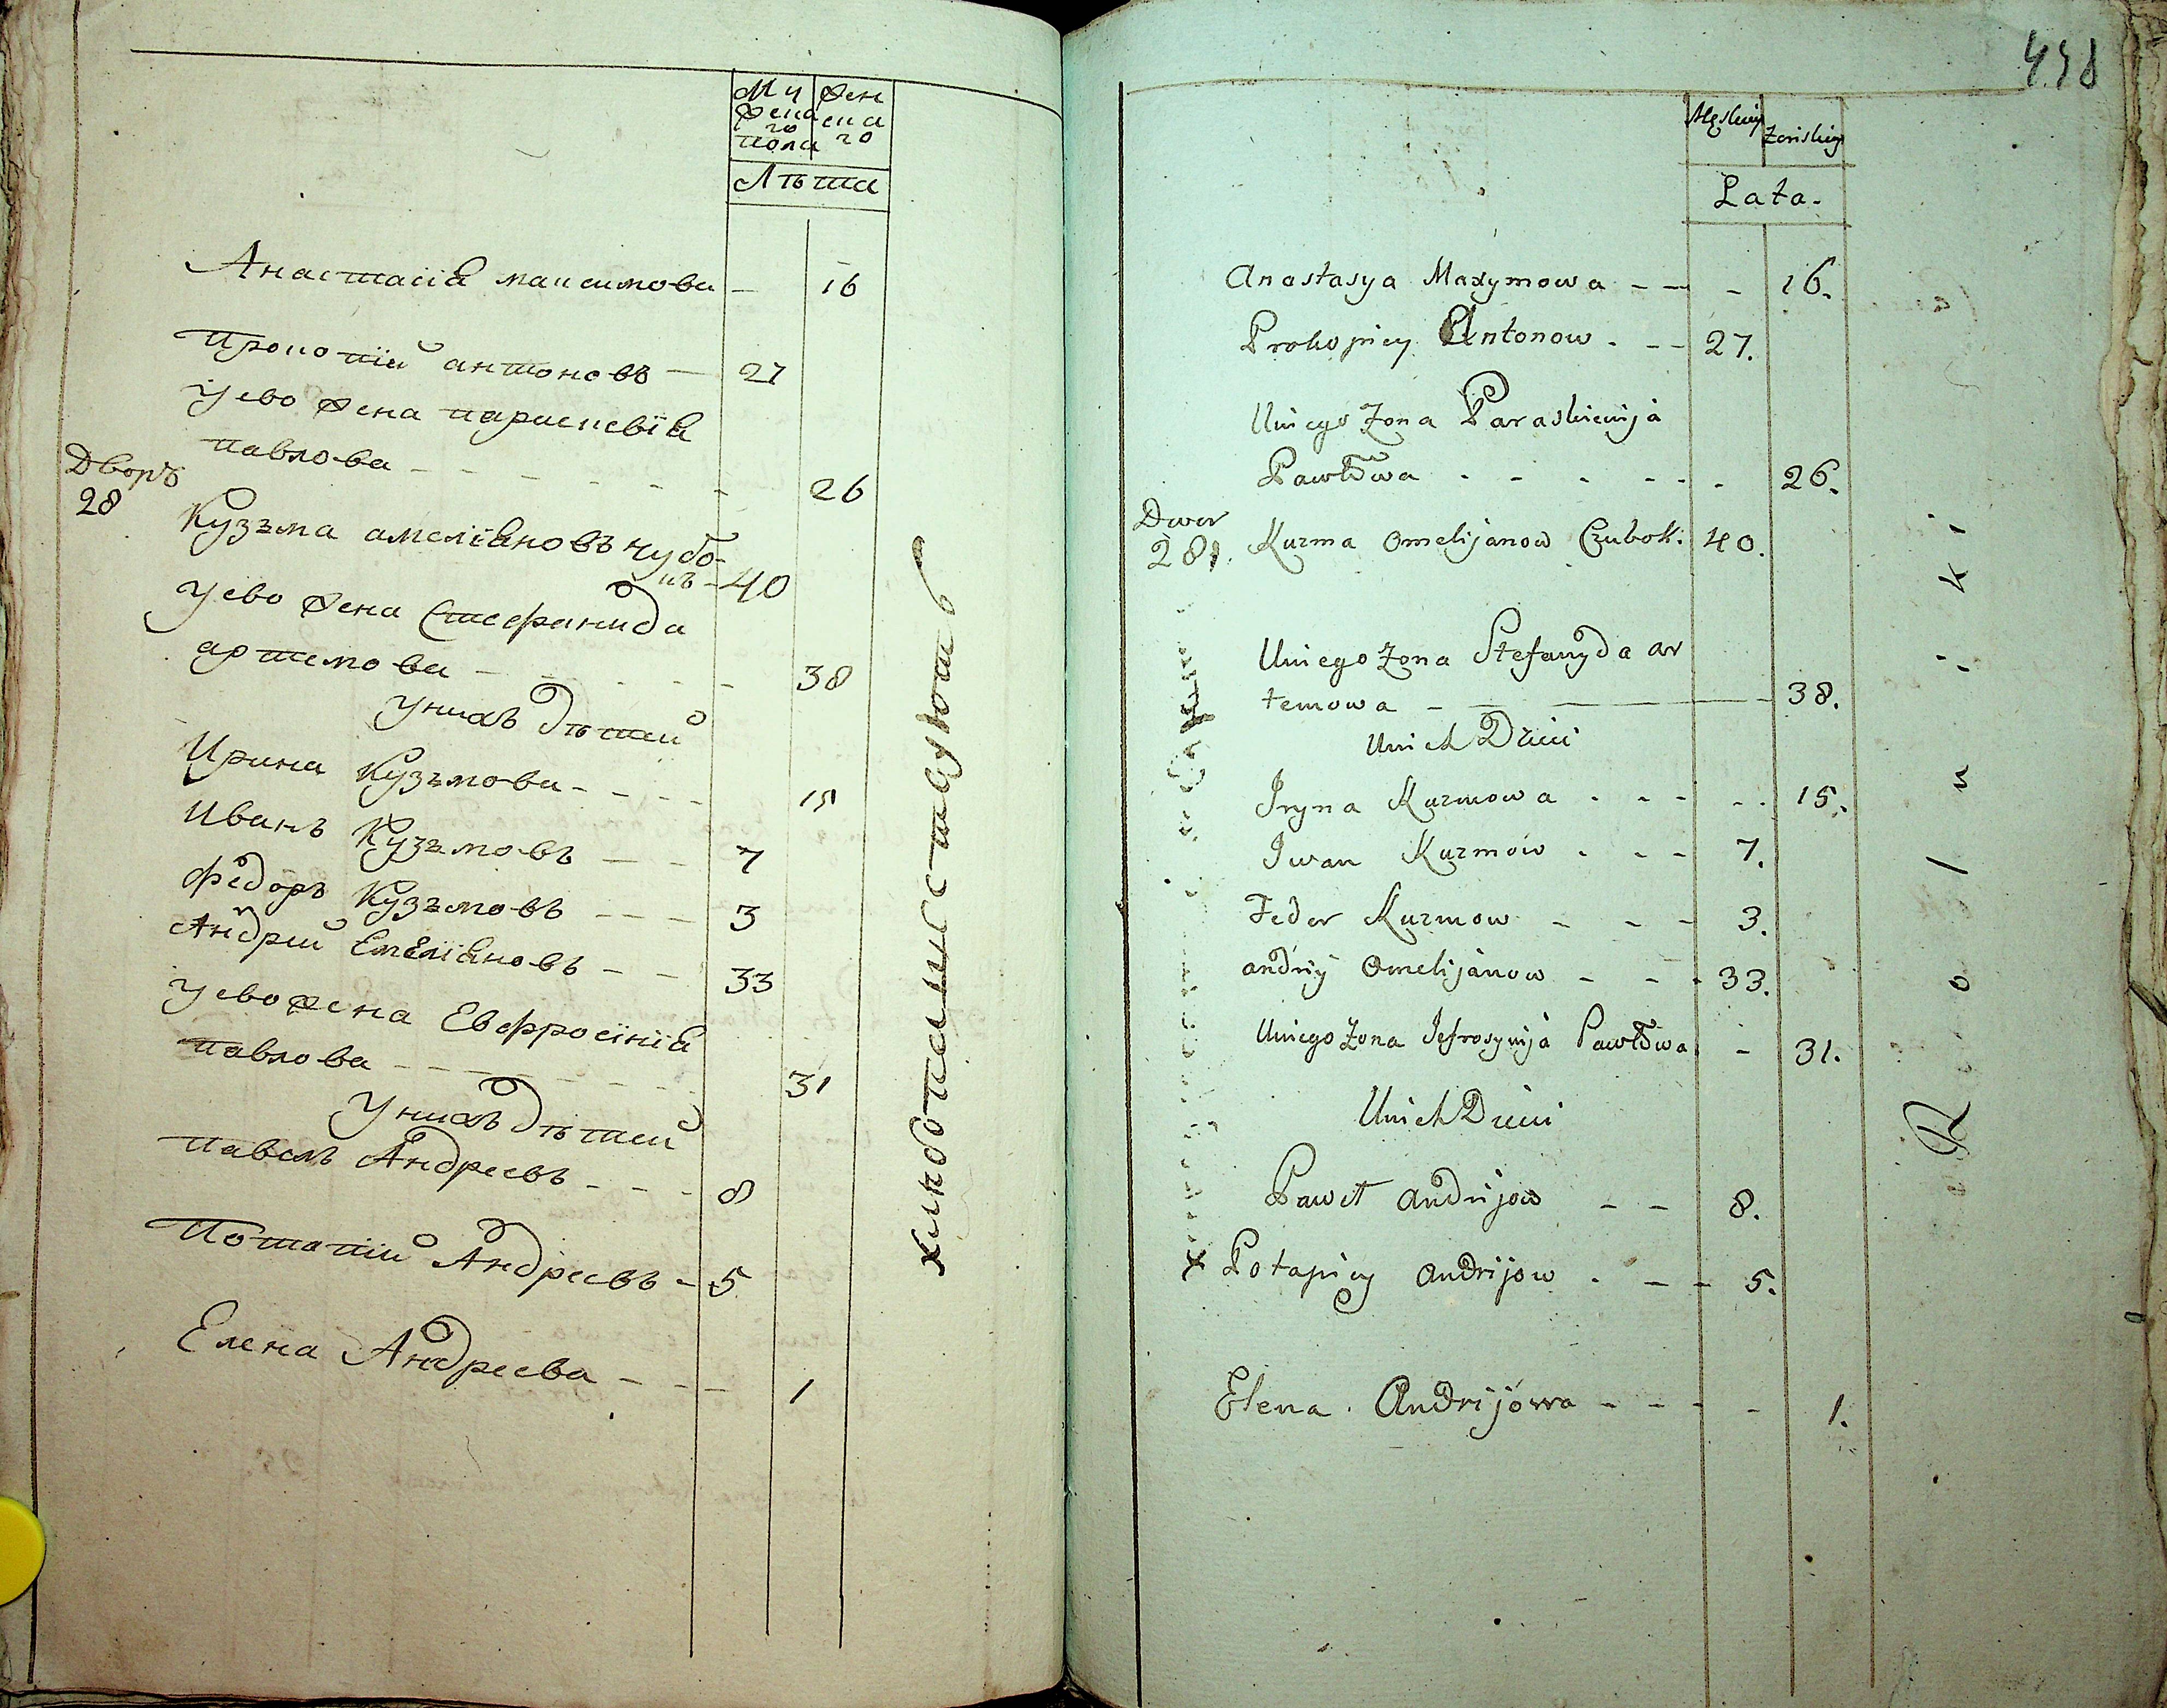 Му жеска го пола
жен ска го
Лѣта
Анастасіѧ максимова — 16
прокопій антоновъ — 27
Унево жена параскевіѧ
павлова - - - - - - 26
Дворъ 28
Кузъма амеліѧновъ чубо-
къ - 40
Унево жена Стефанида
артемова - - - - - 38
Унихъ дѣтей
Ирина Кузъмова - - - - 15
Иванъ Кузъмовъ - - 7
Федоръ Кузъмовъ - - - 3
Андрей Емеліѧновъ - - 33
Унево жена Евфросініѧ
павлова - - - - - - - 31
Унихъ дѣтей
павелъ Андреевъ - - - 8
Потапій Андреевъ - 5
Елена Андреева - - - 1
хлѣбопашествуютъ
498
Męskiey
żeńskiey
Lata.
Anastasya Maxymowa - - - 16.
Prokopiey Antonow. - - 27.
Uniego Zona Paraskiewija
Pawłowa - - - - - - 26.
Dwor 28.
Kuzma Omelijanow Czubok. 40.
Uniego Zona Stefanyda ar
temowa - - - - 38.
Unich Dzieci
Iryna Kuzmowa - - - - - 15.
Iwan Kuzmow - - - 7.
Fedor Kuzmow - - - 3.
andriy Omelijanow - - - 33.
Uniego Zona Jefrosynija Pawłowa - 31.
Unich Dzieci
Paweł andrijow - - 8.
Potapiey andrijow - - - 5.
Elena Andrijowa - - - - 1.
Rolniki